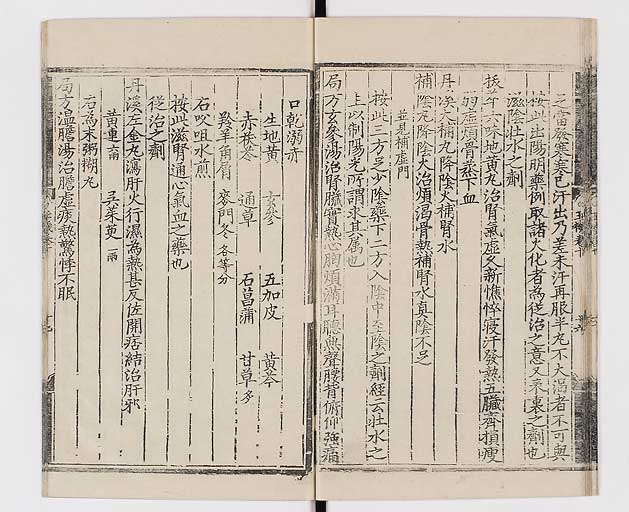 之當發寒寒已汗出乃差未汗再服半丸不大渴者不可與
按此出陽明藥例取諸大化者為從治之意又釆裏之劑也
滋陰壯水之劑
六味地黃丸治腎氣虛久新憔悴寢汗發熱五臟齊損瘦
弱虛煩骨蒸下血
丹溪大補丸降陰火補腎水
補陰丸降陰火治煩渴骨熱補腎水真陰不足
並見補虛門
按此三方足少陰藥下二方入陰中至陰之劑經云壯水之
上以制陽光所謂求其属也
局方玄參湯治腎臟實熱心胸煩滿耳聽無聲腰背俯仰強痛
口乾溺赤
生地黃 玄參 五加皮 黃芩
赤茯苓 通草 石菖蒲 甘草多
羚羊角屑 麥門冬各等分
右㕮咀水煎
按此滋腎通心氣血之藥也
從治之劑
丹溪左金丸瀉肝火行濕為熱甚反佐開痞結治肝邪
黃連六兩 吳茱萸一兩
右為末粥糊丸
局方温膽湯治膽虛痰熱驚悸不眠